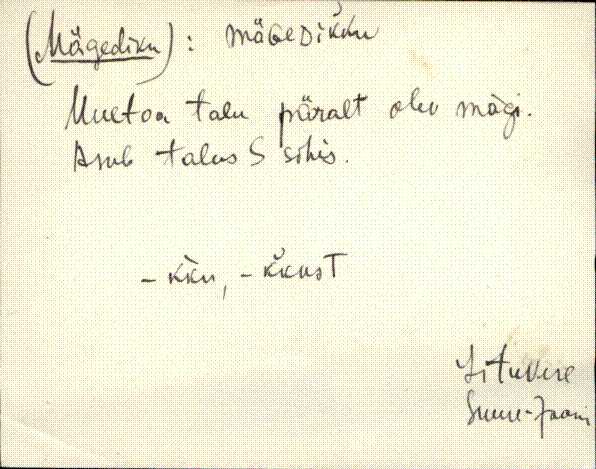 (Mägediku): mäGeDiKku
Muetoa talu päralt olev mägi.
Asub talus S sihis.
- kku, - kkusT
Suure-Jaani